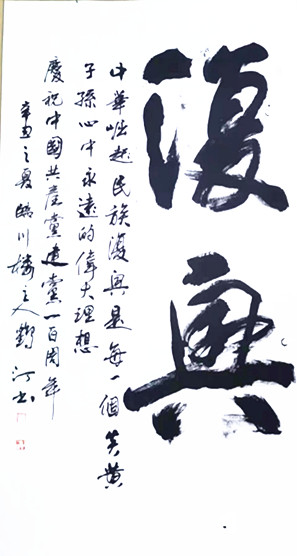 復興
中華崛起民族復興是每一個炎黄
子孫心中永遠的偉大理想
慶祝中國共産黨建黨一百周年
辛丑之夏臨川樓主人鄭 书